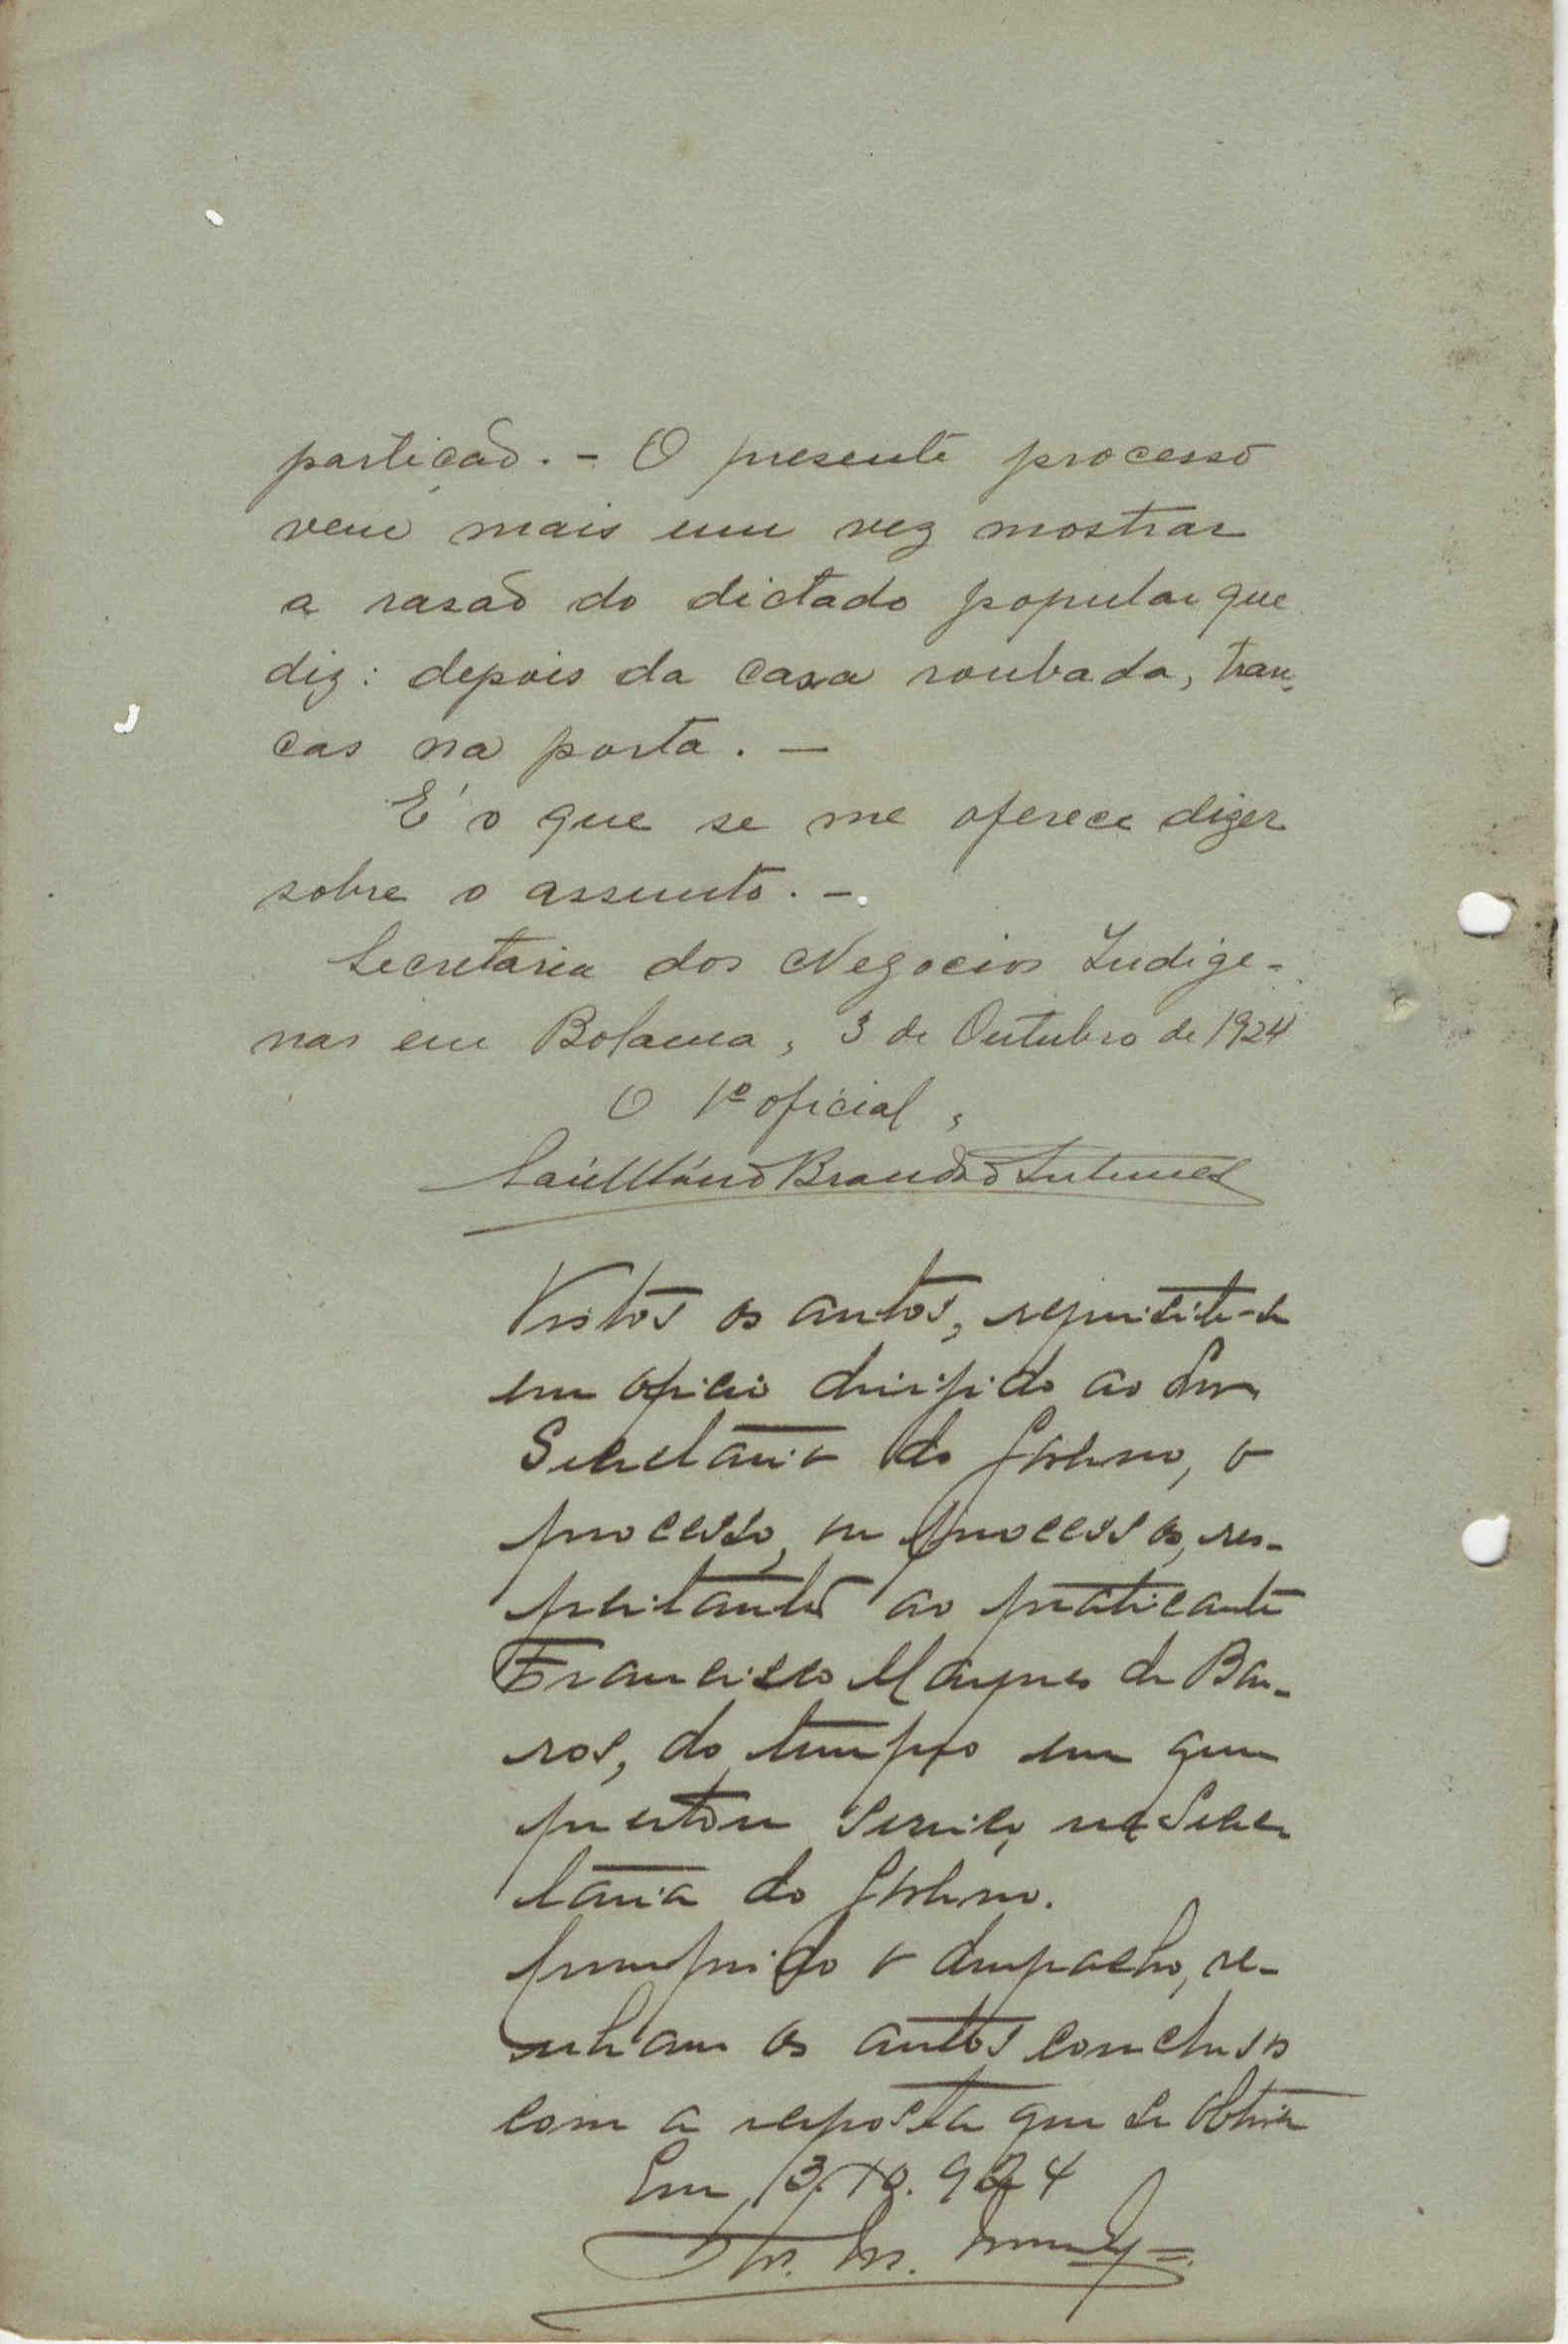 partição. - O presente processo
vem mais um vez mostrar
a rasão do dictado popular que
diz: depois da casa roubada, tran-
cas na porta. —
E' o que se me oferece dizer
sobre o assunto. -.
Secretaria dos Negocios Indige-
nas em Bolama, 3 de Outubro de 1924
O 1º oficial,
Brandão Antunes
Vistos os autos, requisite-se
em oficio dirigido ao Snr
Secretário do Governo, o
processo, ou processos, res-
peitantes ao praticante
Francisco Marques de Bar-
ros, do tempo em que
prestou serviço na Secre
tária do Governo.
Cumprido o despacho, ve-
nham os autos conclusos
com a resposta que se obtiver
Em 13.10.924